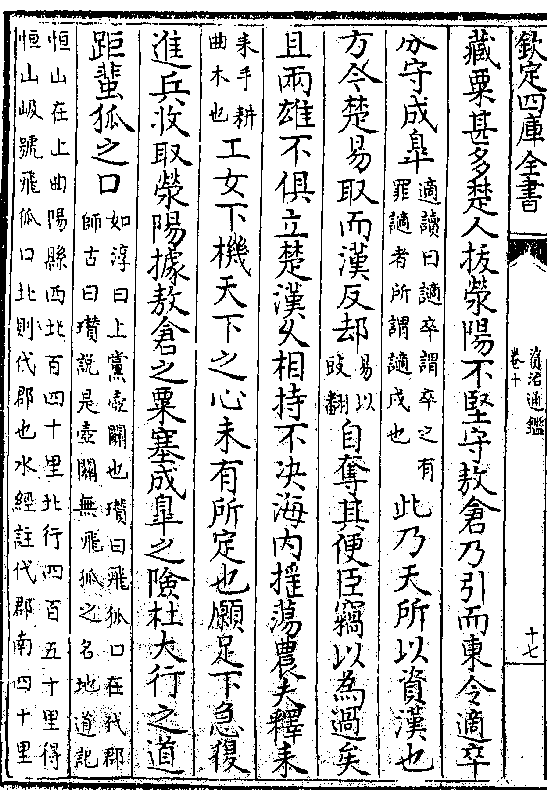 欽定四庫全書
資治通鑑
卷十
十七
藏粟甚多楚人拔滎陽不堅守敖倉乃引而東令適卒
分守成臯適讀曰讁卒謂卒之有
罪讁者所謂讁戍也此乃天所以資漢也
方今楚易取而漢反却易以
豉翻自奪其便臣竊以為過矣
且兩雄不俱立楚漢乆相持不决海内摇蕩農夫釋耒
耒手耕
曲木也工女下機天下之心未有所定也願足下急復
進兵收取滎陽據敖倉之粟塞成臯之險杜大行之道
距蜚狐之口如淳曰上黨壺關也瓚曰飛狐口在代郡
師古曰瓚說是壺關無飛狐之名地道記
恒山在上曲陽縣西北百四十里北行四百五十里得
恒山岋號飛狐口北則代郡也水經註代郡南四十里